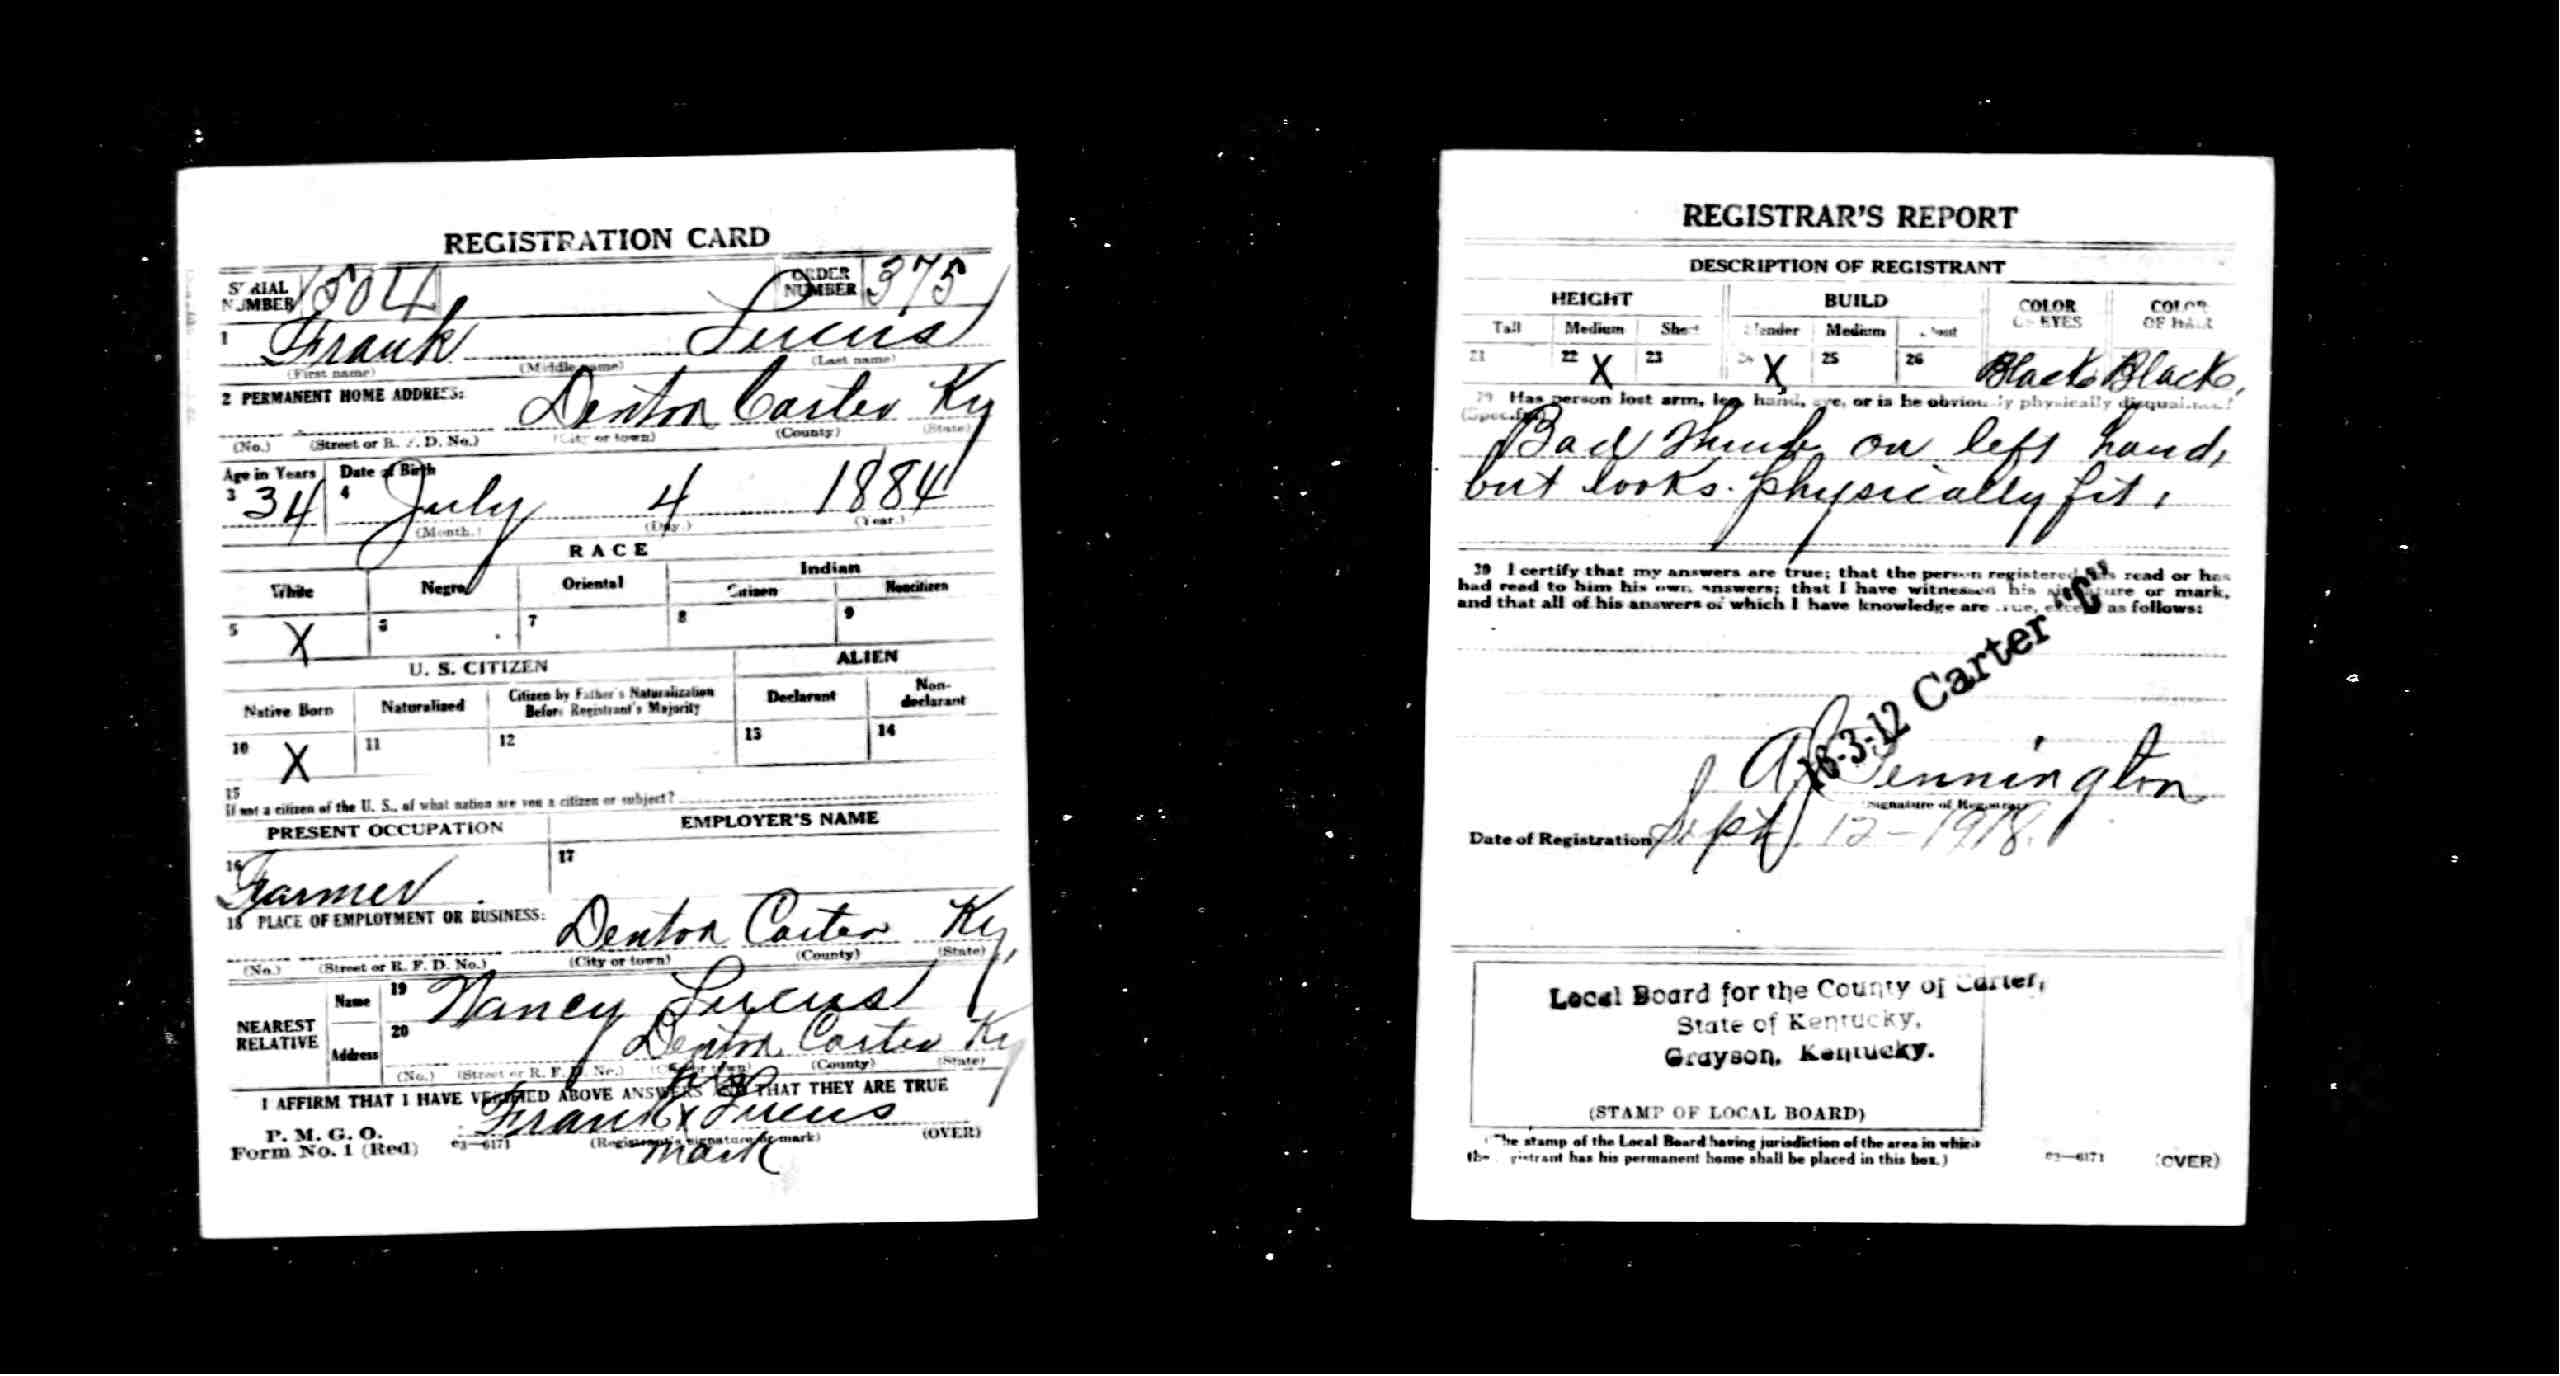 REGISTRATION CARD
SERIAL NUMBER 1504 ORDER NUMBER 375
1 Frank Lucus
(First name) (Middle name) (Last name)
2 PERMANENT HOME ADDRESS: Denton Carter Ky
(No.) (Street or R. F. D. No.) (City or town) (County) (State)
Age in Years Date of Birth
3 34 4 July 4 1884
(Month.) (Day.) (Year.)
RACE
White Negro Oriental Indian
Citizen Noncitizen
5 X 6 7 8 9
U. S. CITIZEN ALIEN
Native Born Naturalized Citizen by Father's Naturalization Before Registrant's Majority Declarant Non-declarant
10 X 11 12 13 14
15
If not a citizen of the U. S., of what nation are you a citizen or subject?
PRESENT OCCUPATION EMPLOYER'S NAME
16 Farmer 17
18 PLACE OF EMPLOYMENT OR BUSINESS: Denton Carter Ky,
(No.) (Street or R. F. D. No.) (City or town) (County) (State)
NEAREST RELATIVE Name 19 Nancy Lucus
Address 20 Denton Carter Ky
(No.) (Street or R. F. D. No.) (City or town) (County) (State)
I AFFIRM THAT I HAVE VERIFIED ABOVE ANSWERS AND THAT THEY ARE TRUE
his
P. M. G. O. Frank X Lucus
Form No. 1 (Red) 03—6171 (Registrant's signature or mark) (OVER)
mark
REGISTRAR'S REPORT
DESCRIPTION OF REGISTRANT
HEIGHT BUILD COLOR OF EYES COLOR OF HAIR
Tall Medium Short Slender Medium Stout
21 22 X 23 24 X 25 26 Black Black,
29 Has person lost arm, leg, hand, eye, or is he obviously physically disqualified?
(Specify.)
Bad Thumb on left hand,
but looks physically fit,
30 I certify that my answers are true; that the person registered has read or has
had read to him his own answers; that I have witnessed his signature or mark,
and that all of his answers of which I have knowledge are true, except as follows:
16-3-12 Carter "C"
Pennington
(Signature of Registrar)
Date of Registration Sept. 12-1918.
Local Board for the County of Carter,
State of Kentucky,
Grayson, Kentucky.
(STAMP OF LOCAL BOARD)
(The stamp of the Local Board having jurisdiction of the area in which
the registrant has his permanent home shall be placed in this box.)
03—6171 (OVER)